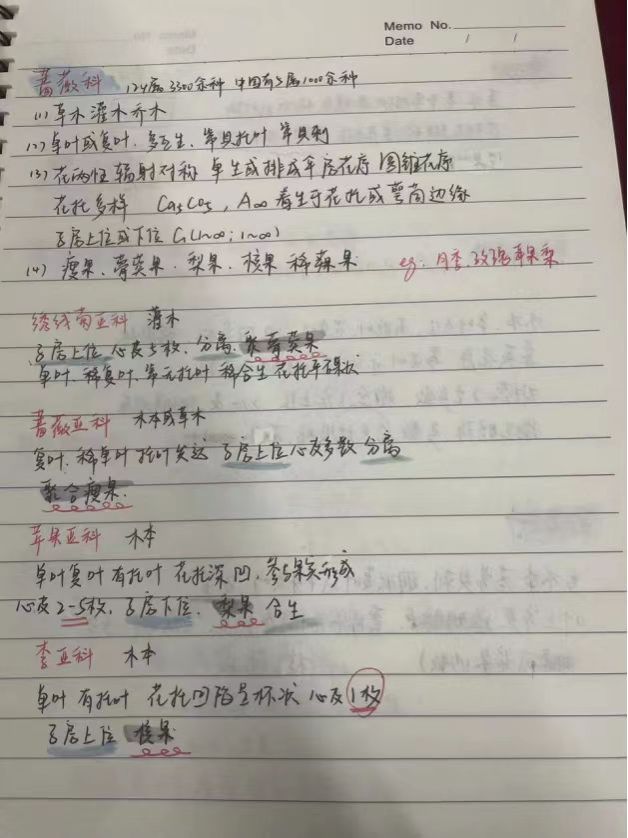 Memo No.
Date / /
蔷薇科 124属 3300余种 中国有51属1000余种
(1) 草木灌木乔木
(2) 单叶或复叶. 多互生、常具托叶 常具刺
(3) 花两性 辐射对称 单生或排成伞房花序 圆锥花序
花托多样 Ca5Co5, A∞ 着生于花托或萼筒边缘
子房上位或下位 G(1~∞; 1~∞)
(4) 瘦果、蓇葖果. 梨果、核果 稀蒴果 eg: 月季.玫瑰苹果梨
绣线菊亚科 灌木
子房上位 心皮5枚. 分离. 蓇葖果
单叶. 稀复叶. 常无托叶 稀合生 花托
蔷薇亚科 木本或草木
复叶. 稀单叶 托叶发达 子房上位 心皮多数 分离
聚合瘦果.
苹果亚科 木本
单叶复叶 有托叶 花托深凹. 参与果实形成
心皮 2-5枚. 子房下位. 梨果 合生
李亚科 木本
单叶 有托叶 花托凹陷呈杯状 心皮1枚
子房上位 核果